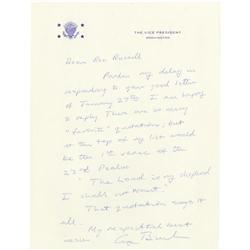 THE VICE PRESIDENT
WASHINGTON
Dear Rev Russell
Pardon my delay in
responding to your good letter
of January 27th. I am happy
to reply. There are so many
"favorite" quotations, but
at the top of my list would
be the 1st verse of the
23rd Psalm
"The Lord is my shepherd
I shall not want."
That quotation says it
all. My respectful best
wishes George Bush